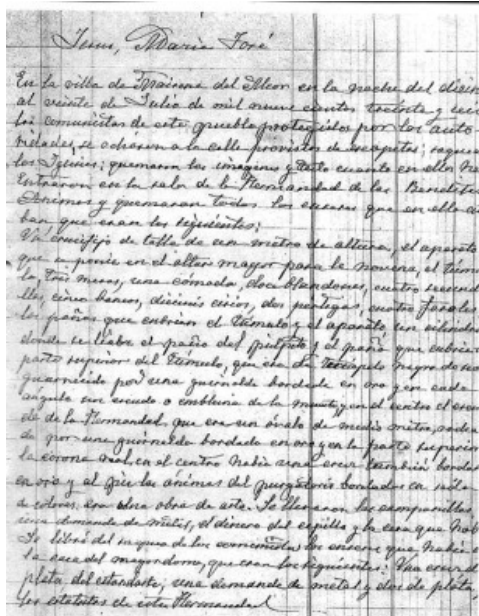 Jesus, Maria José
En la villa de Mairena del Alcor en la noche del diecin
al veinte de Julio de mil nuevecientos treinta y seis
los comunistas de este pueblo protegidos por las auto
ridades, se echaron a la calle provistos de escopetas; saquea
las Iglesias; quemaron las imagenes y todo cuanto en ellas ha
Entraron en la sala de la Hermandad de las Benditas
Animas y quemaron todos los enseres que en ella
ban que eran los siguientes:
Un crucifijo de talla de un metro de altura, el aparato
que se ponia en el altar mayor para la novena, el túm
lo, tres mesas, una cómoda, doce blandones, cuatro
lles, cinco bancos, cirios, dos pértigas, cuatro faroles
los paños que cubrian el túmulo y el aparato, un
donde se el paño del pulpito y el paño que cubria
parte superior del túmulo, que era de terciopelo negro de
guarnecido por una guirnalda bordada en oro y en cada
angulo un escudo o emblema de la muerte, y en el centro el escu
do de la Hermandad, que era un óvalo de medio metro, rodea
do por una guirnalda bordada en oro y en la parte superior
la corona real, en el centro habia una cruz tambien borda
en oro y al pie las ánimas del purgatorio bordadas en seda
de colores, era una obra de arte. Se llevaron las campanillas,
una demanda de metal, el dinero del cepillo y la cera que hab
Se libró del saqueo de los comunistas los enseres que habia
la casa del mayordomo, que eran los siguientes: Una cruz de
plata del estandarte, una demanda de metal y dos de plata,
los estatutos de esta Hermandad